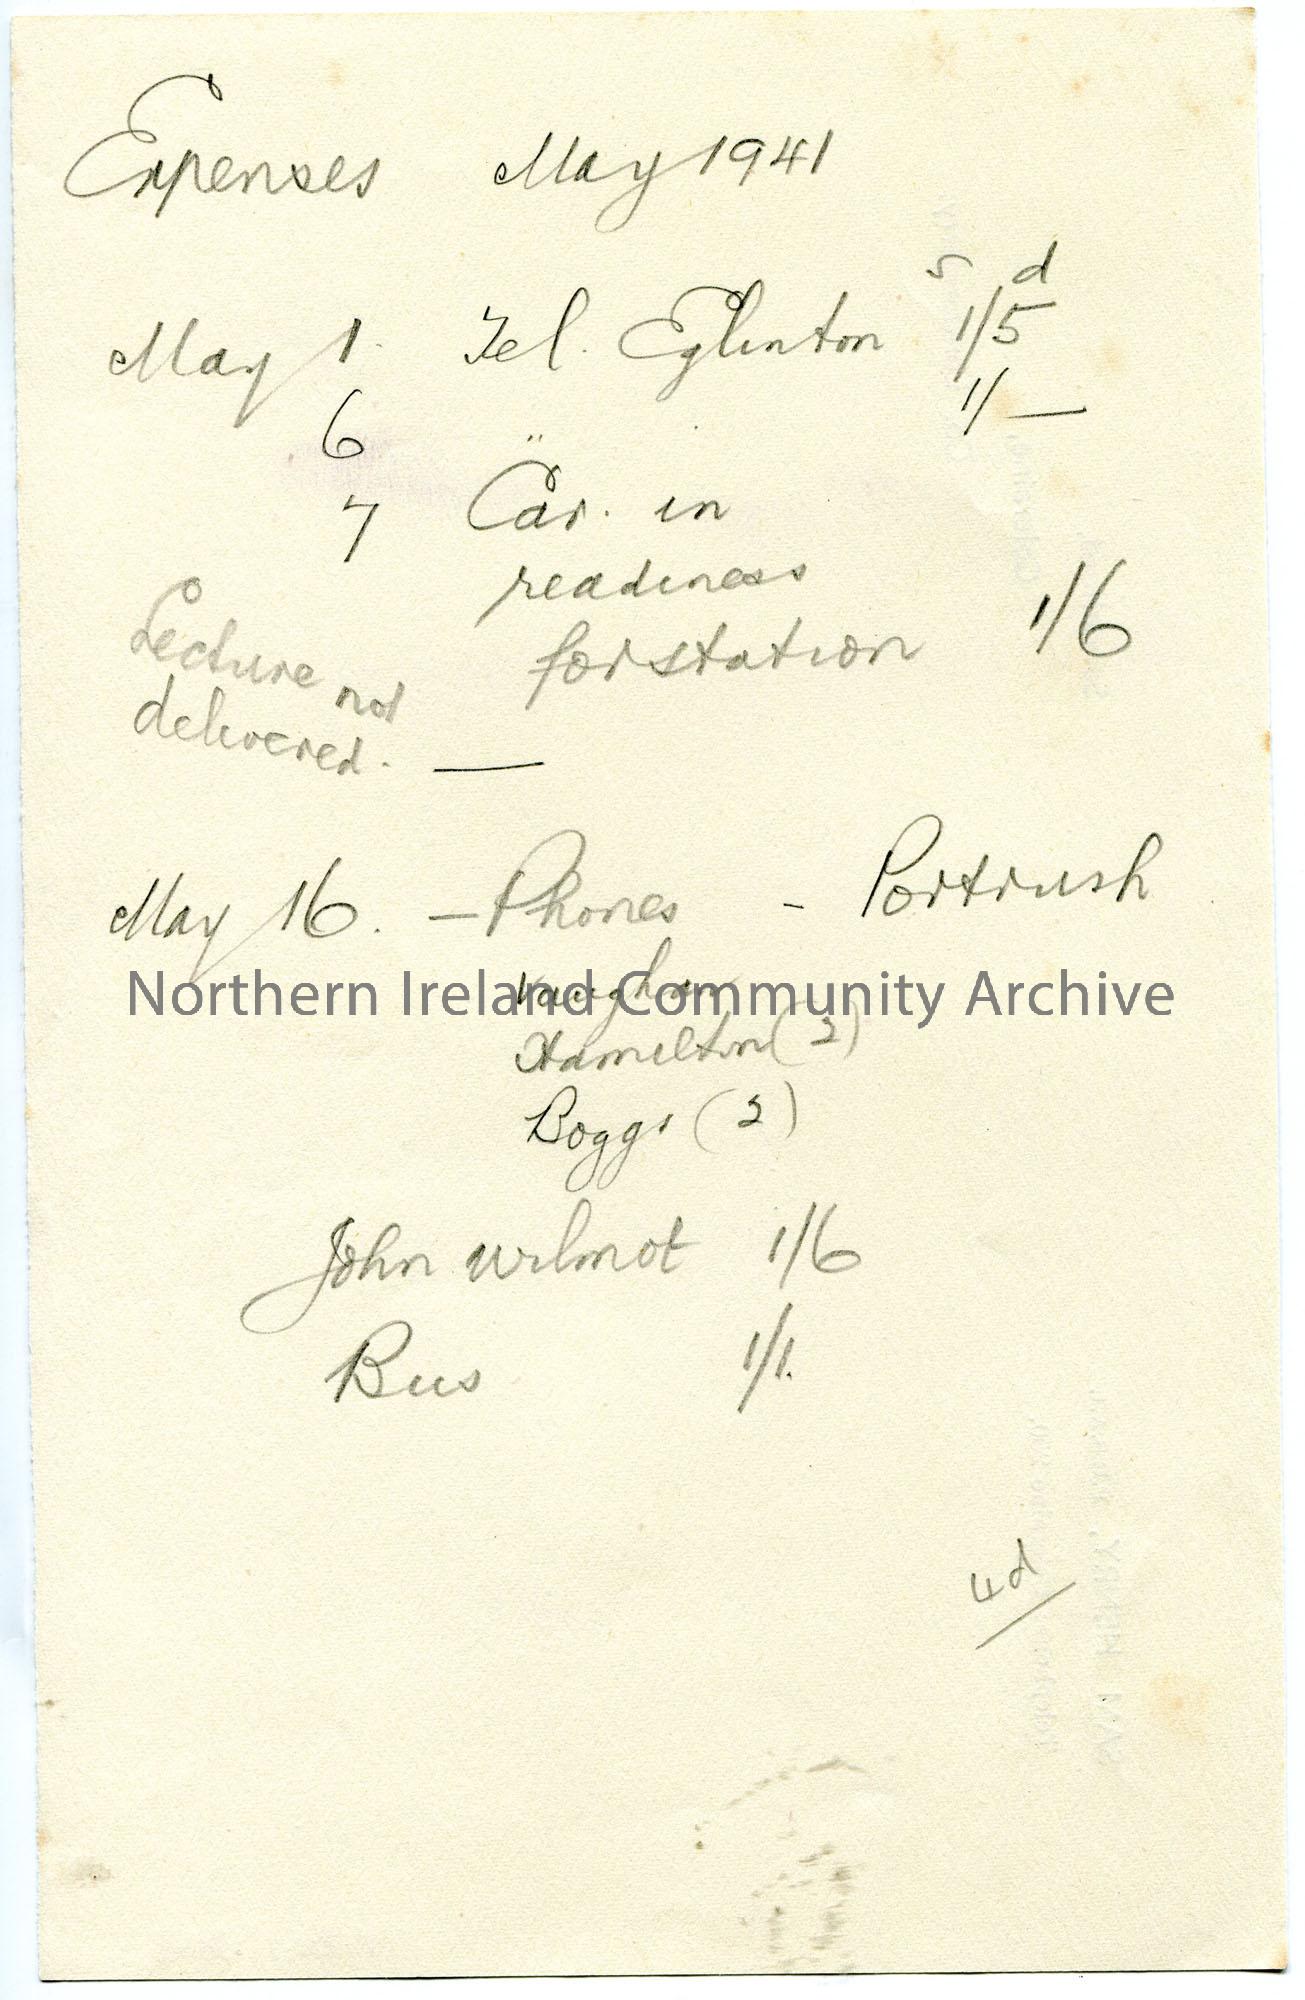 Expenses May 1941
s d
May 1. Tel. Eglinton 1/5
6 " 1/—
7 Car. in
readiness
for station 1/6
Lecture not
delivered. —
May 16. — Phones - Portrush
Vaughan
Hamilton (2)
Boggs (2)
John Wilmot 1/6
Bus 1/1.
4d
Northern Ireland Community Archive